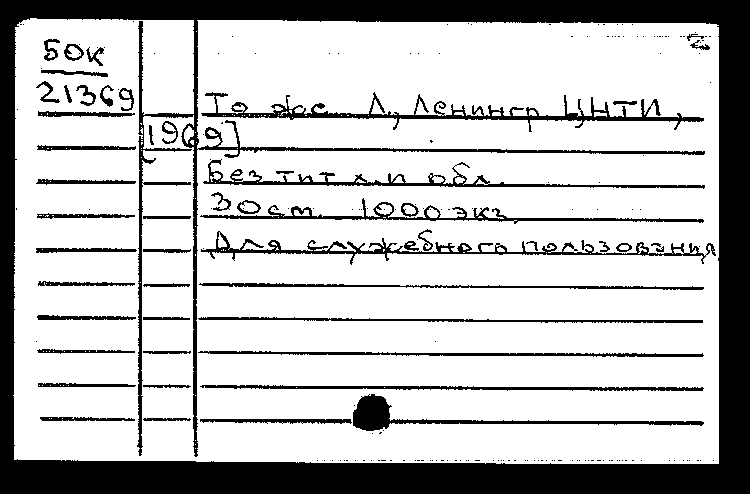 2
БОК
21369
То же. Л., Ленингр ЦНТИ,
[1969]
Без тит л. и обл.
30 ст. 1000 экз.
Для служебного пользования